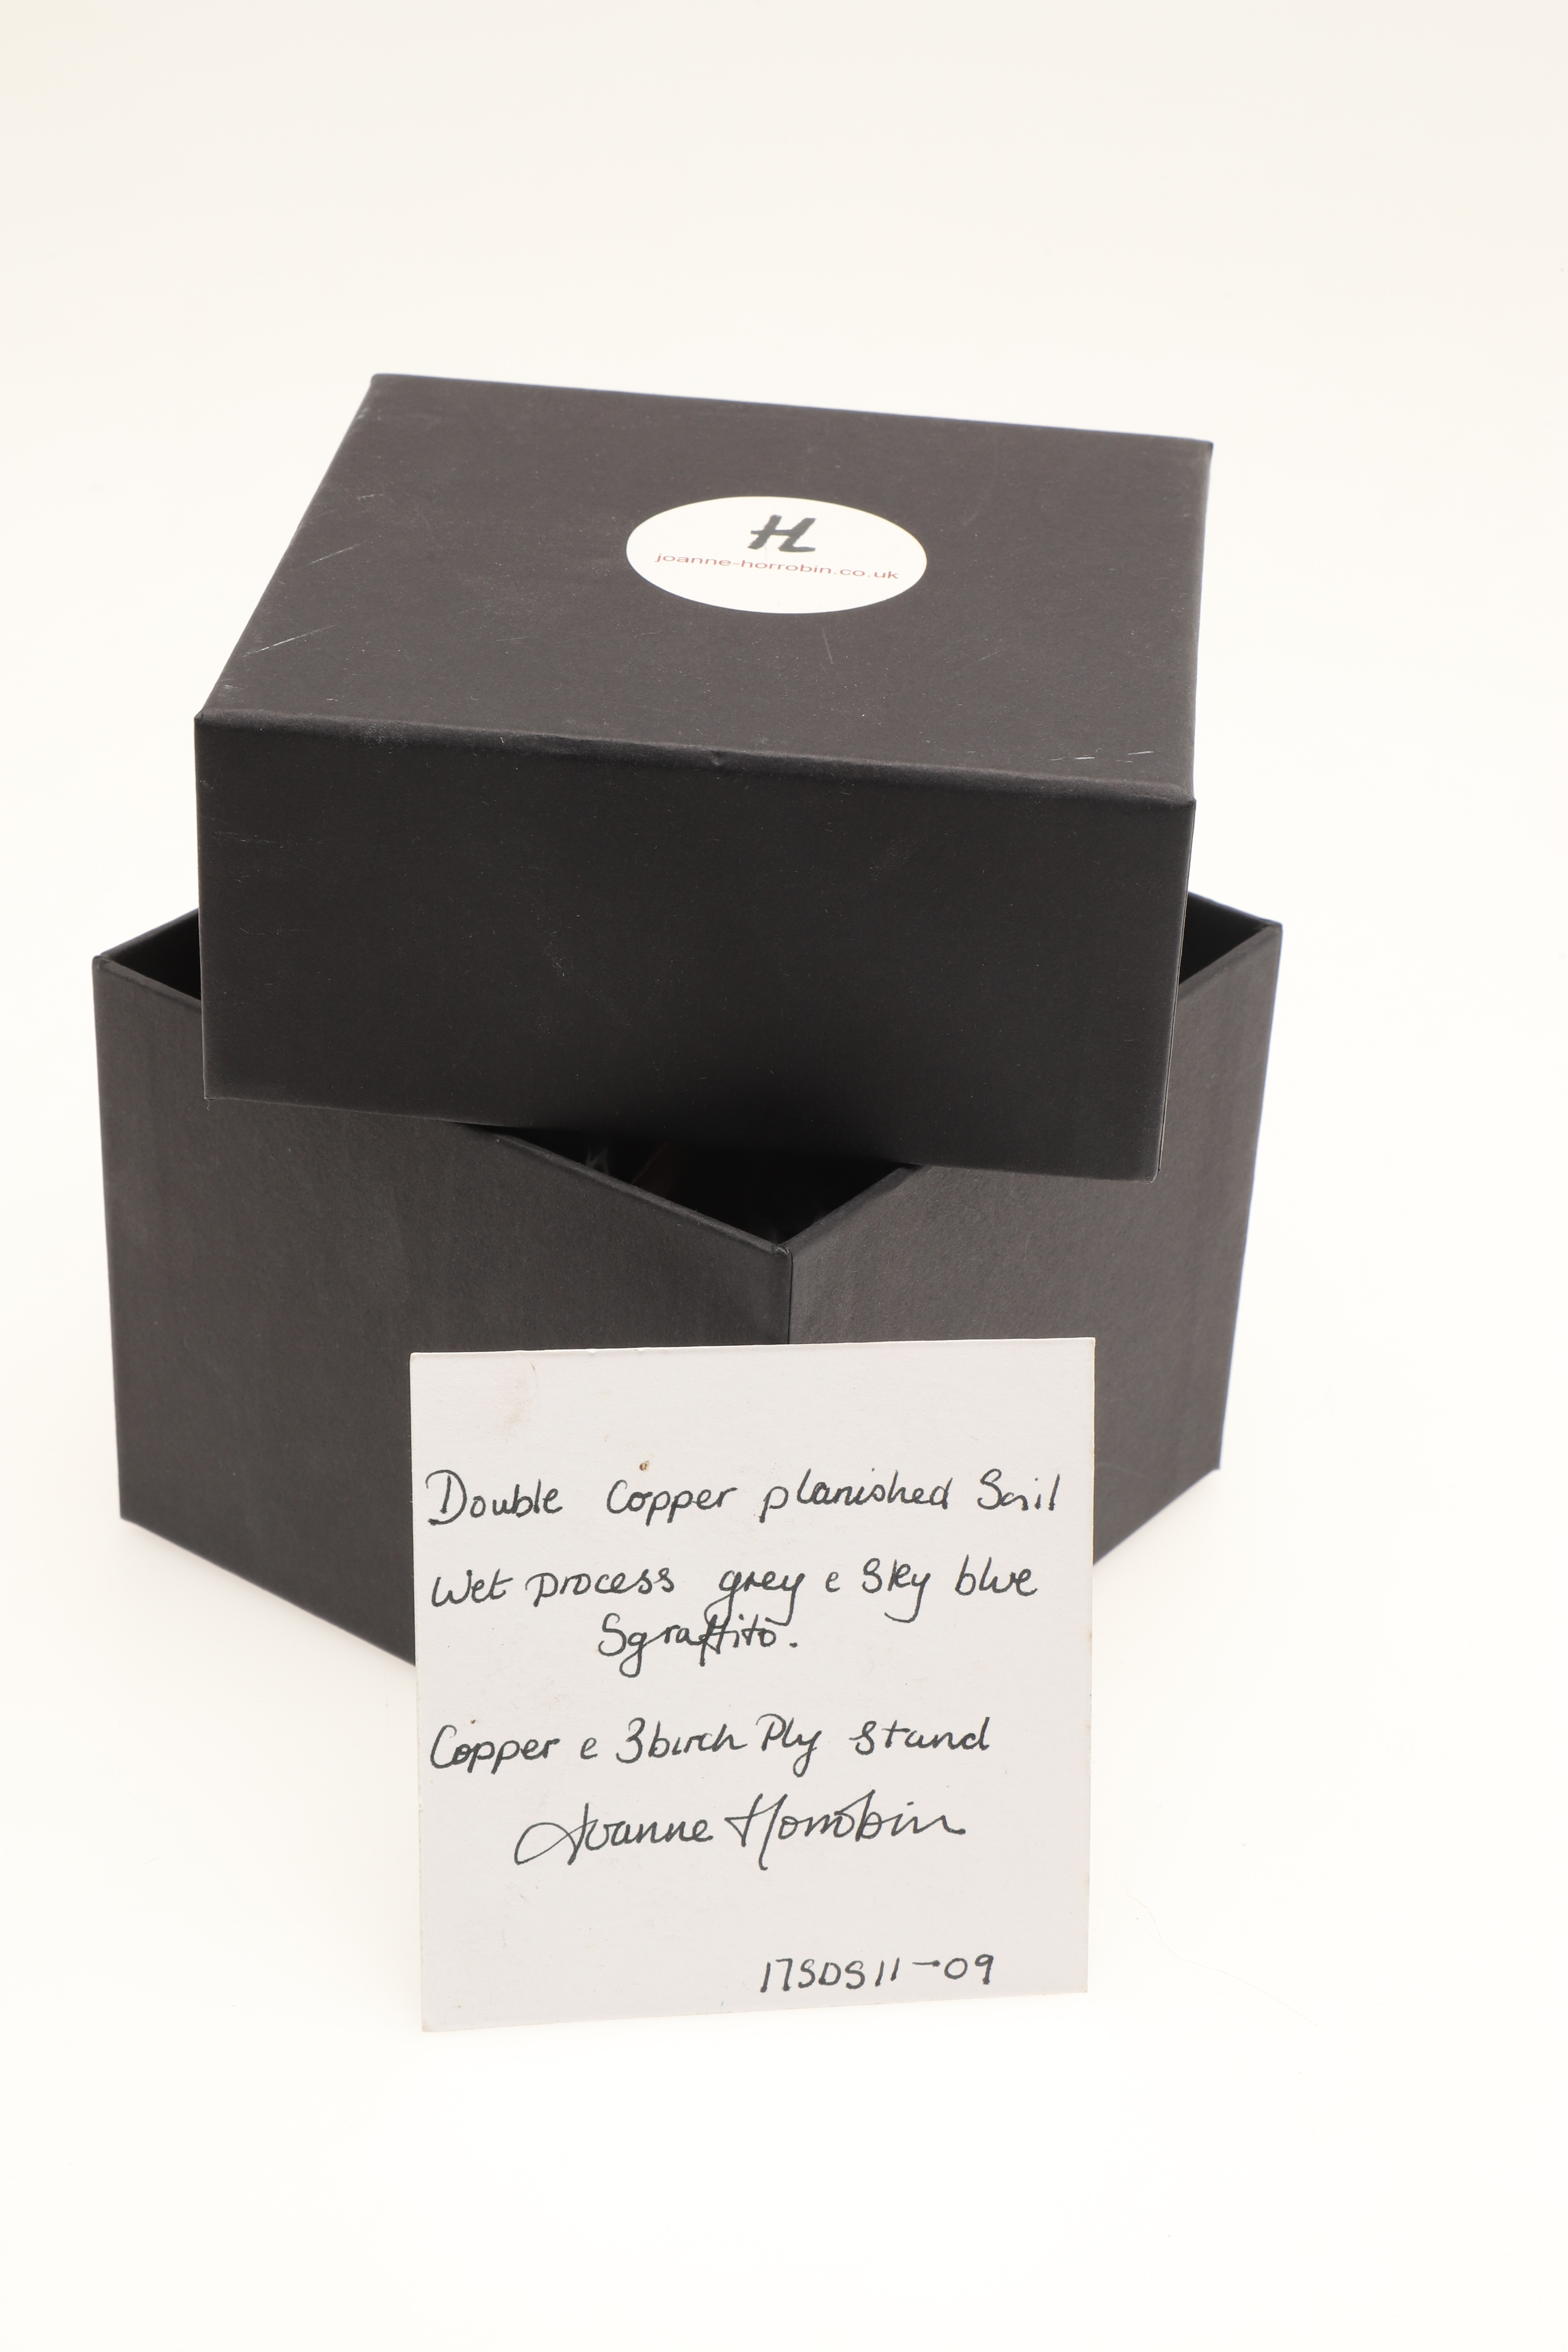 H
joanne-horrobin.co.uk
Double Copper planished Sail
Wet process grey e Sky blue
Sgraffito.
Copper e 3birch Ply stand
Joanne Horrobin
17SDS11-09